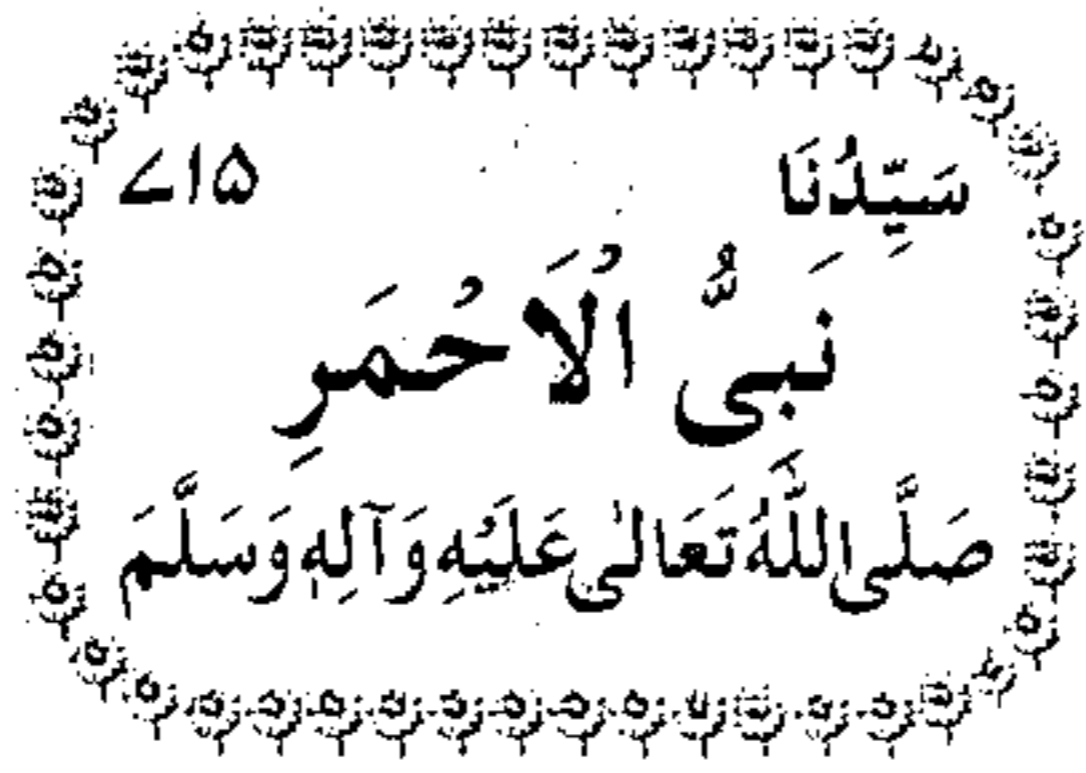 سَيِّدُنَا ۷۱۵
نَبِیُّ الْاَحْمَرِ
صَلَّى اللّٰهُ تَعَالىٰ عَلَيْهِ وَآلِهٖ وَسَلَّمَ